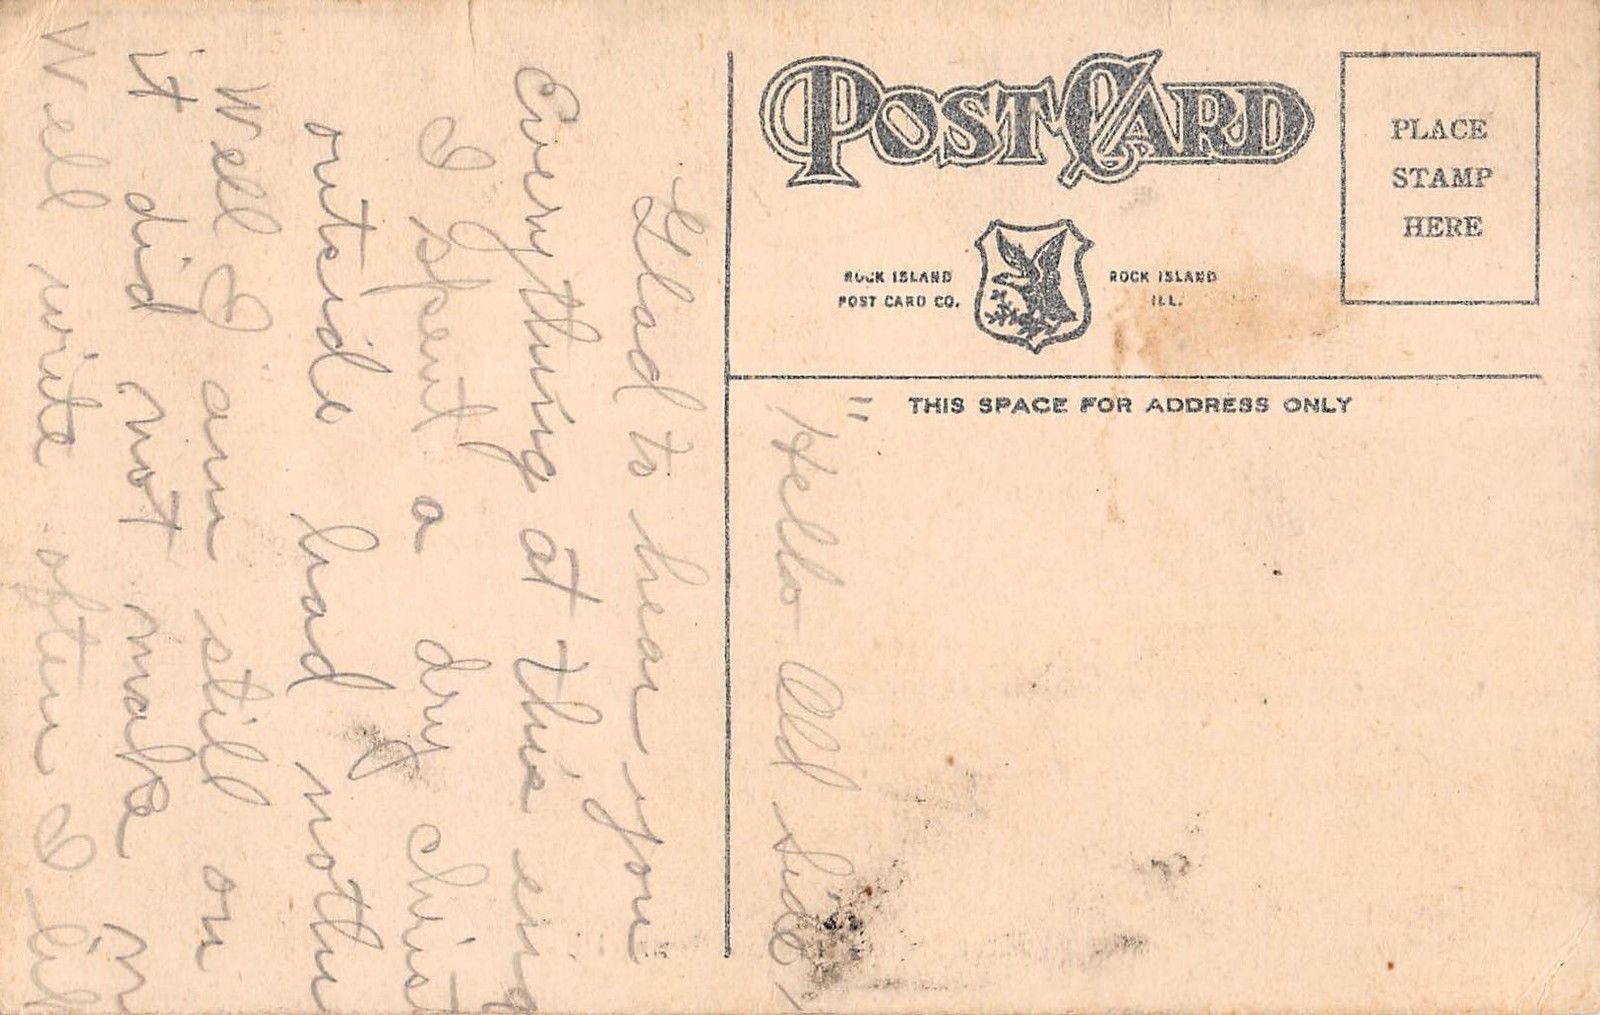 POST CARD
PLACE
STAMP
HERE
ROCK ISLAND
POST CARD CO.
ROCK ISLAND
ILL.
THIS SPACE FOR ADDRESS ONLY
"Hello Old Side
Glad to hear you
Everything at this eng
I spent a dry christ
outside had nothin
Well I am still on
it did not make m
Well write often I lik